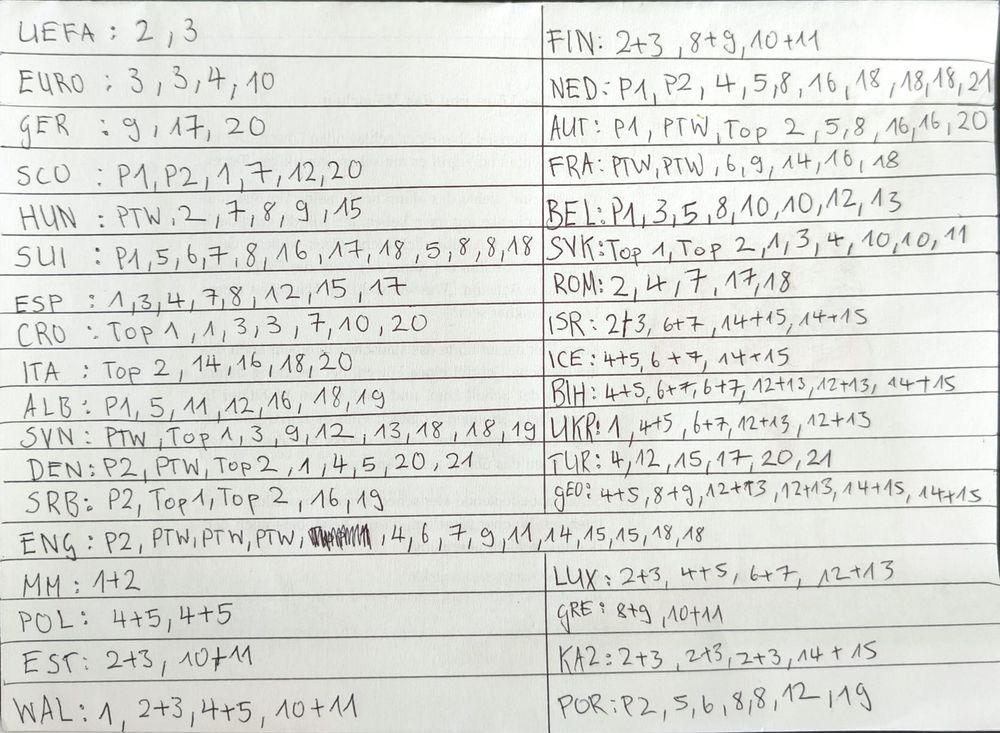 UEFA : 2, 3
EURO : 3, 3, 4, 10
GER : 9, 17, 20
SCO : P1, P2, 1, 7, 12, 20
HUN : PTW, 2, 7, 8, 9, 15
SUI : P1, 5, 6, 7, 8, 16, 17, 18, 5, 8, 8, 18
ESP : 1, 3, 4, 7, 8, 12, 15, 17
CRO : Top 1, 1, 3, 3, 7, 10, 20
ITA : Top 2, 14, 16, 18, 20
ALB : P1, 5, 11, 12, 16, 18, 19
SVN : PTW, Top 1, 3, 9, 12, 13, 18, 18, 19
DEN: P2, PTW, Top 2, 1, 4, 5, 20, 21
SRB: P2, Top 1, Top 2, 16, 19
ENG : P2, PTW, PTW, PTW, 4, 6, 7, 9, 11, 14, 15, 15, 18, 18
MM : 1+2
POL: 4+5, 4+5
EST: 2+3, 10+11
WAL: 1, 2+3, 4+5, 10+11
FIN: 2+3, 8+9, 10+11
NED: P1, P2, 4, 5, 8, 16, 18, 18, 18, 21
AUT: P1, PTW, Top 2, 5, 8, 16, 16, 20
FRA: PTW, PTW, 6, 9, 14, 16, 18
BEL: P1, 3, 5, 8, 10, 10, 12, 13
SVK: Top 1, Top 2, 1, 3, 4, 10, 10, 11
ROM: 2, 4, 7, 17, 18
ISR: 2+3, 6+7, 14+15, 14+15
ICE: 4+5, 6+7, 14+15
BIH: 4+5, 6+7, 6+7, 12+13, 12+13, 14+15
UKR: 1, 4+5, 6+7, 12+13, 12+13
TUR: 4, 12, 15, 17, 20, 21
GEO: 4+5, 8+9, 12+13, 12+13, 14+15, 14+15
LUX: 2+3, 4+5, 6+7, 12+13
GRE: 8+9, 10+11
KAZ: 2+3, 2+3, 2+3, 14+15
POR: P2, 5, 6, 8, 8, 12, 19